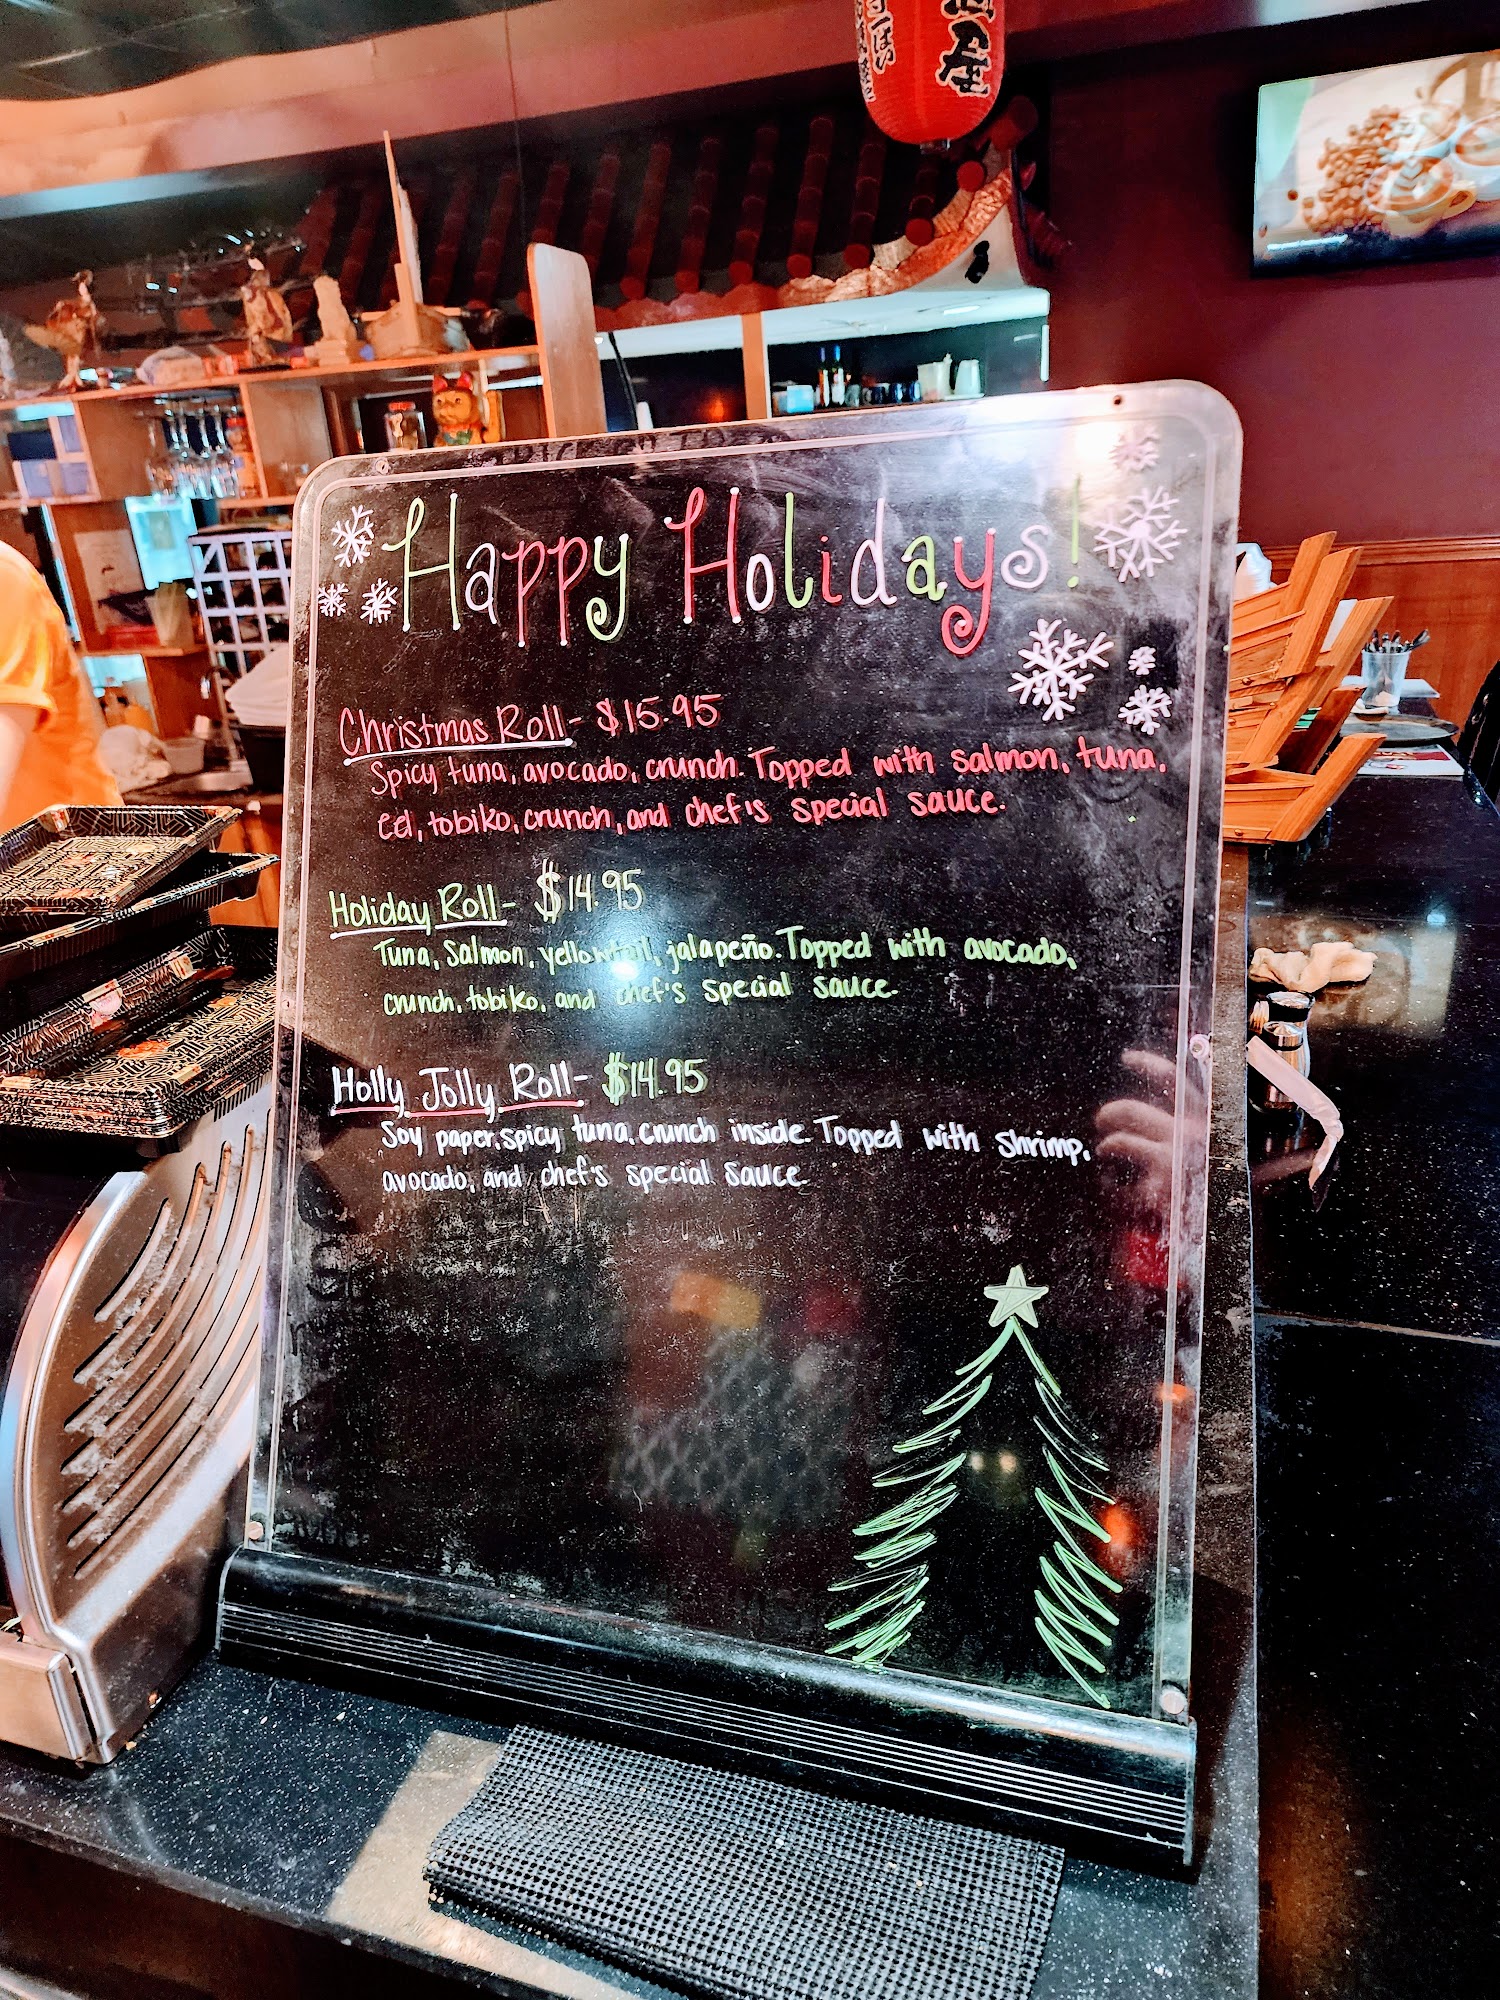 Happy Holidays!
Christmas Roll- $15.95
Spicy tuna, avocado, crunch. Topped with salmon, tuna,
eel, tobiko, crunch, and chef's special sauce.
Holiday Roll- $14.95
Tuna, Salmon, yellowtail, jalapeño. Topped with avocado,
crunch, tobiko, and chef's special sauce.
Holly Jolly Roll- $14.95
Soy paper, spicy tuna, crunch inside. Topped with shrimp,
avocado, and chef's special sauce.